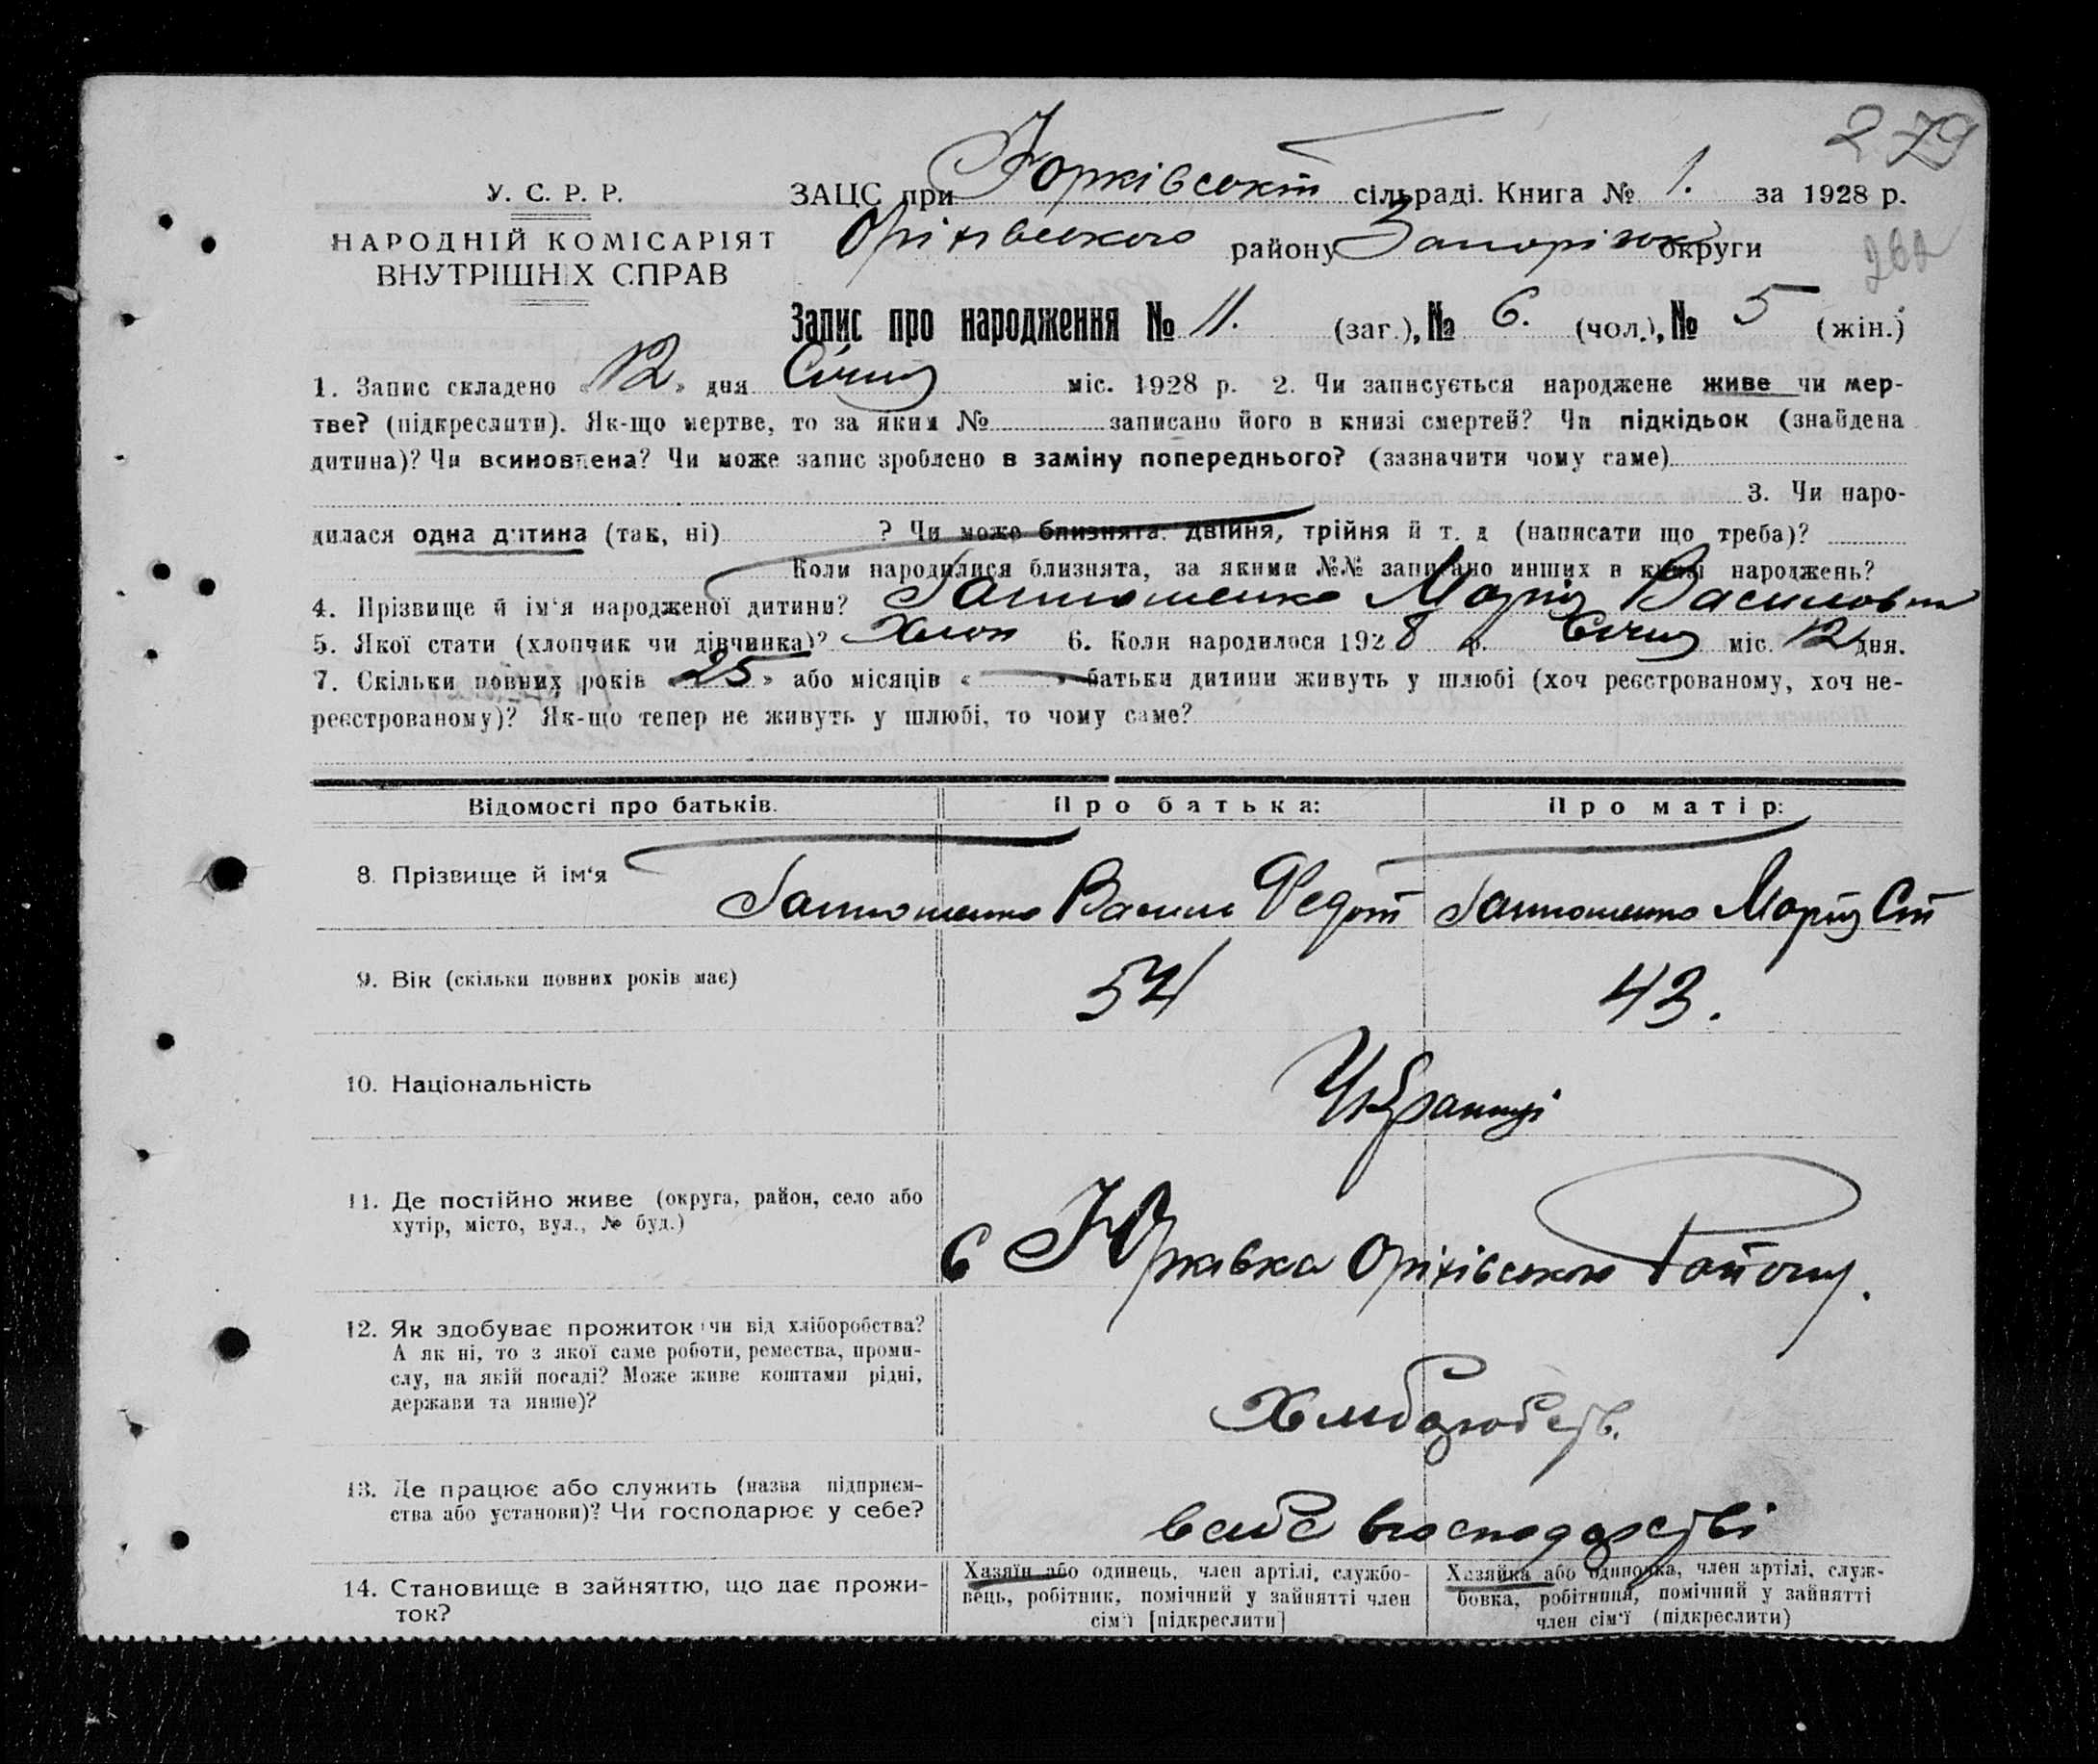 279
У. С. Р. Р.
ЗАЦС при Юрківській сільраді. Книга № 1. за 1928 р.
НАРОДНІЙ КОМІСАРІЯТ
ВНУТРІШНІХ СПРАВ
Оріхівського району Запорізьк округи
262
Запис про народження № 11. (заг.), № 6. (чол.), № 5 (жін.)
1. Запис складено «12» дня Січня міс. 1928 р. 2. Чи записується народжене живе чи мер-
тве? (підкреслити). Як-що мертве, то за яким № записано його в книзі смертей? Чи підкідьок (знайдена
дитина)? Чи всиновлена? Чи може запис зроблено в заміну попереднього? (зазначити чому саме)
3. Чи наро-
дилася одна дитина (так, ні) ? Чи може близнята: двійня, трійня й т. д (написати що треба)?
Коли народилися близнята, за якими №№ записано инших в книзі народжень?
4. Прізвище й ім'я народженої дитини? Марія Василовна
5. Якої стати (хлопчик чи дівчинка)? Хлоп 6. Коли народилося 1928 р. Січня міс. 12 дня.
7. Скільки повних років «25» або місяців « » батьки дитини живуть у шлюбі (хоч реєстрованому, хоч не-
реєстрованому)? Як-що тепер не живуть у шлюбі, то чому саме?
Відомості про батьків. Про батька: Про матір:
8. Прізвище й ім'я Василь Федот Марія Ст
9. Вік (скільки повних років має) 54 43.
10. Національність Українці
11. Де постійно живе (округа, район, село або
хутір, місто, вул., № буд.)
с Юрківка Оріхівського Району.
12. Як здобуває прожиток чи від хліборобства?
А як ні, то з якої саме роботи, ремества, проми-
слу, на якій посаді? Може живе коштами рідні,
держави та инше)?
Хліборобств.
13. Де працює або служить (назва підприєм-
ства або установи)? Чи господарює у себе?
всибе вгосподарстві
14. Становище в зайняттю, що дає прожи-
ток?
Хазяїн або одинець, член артілі, службо-
вець, робітник, помічний у зайнятті член
сім'ї [підкреслити]
Хазяйка або одиночка, член артілі, служ-
бовка, робітниця, помічний у зайнятті
член сім'ї (підкреслити)